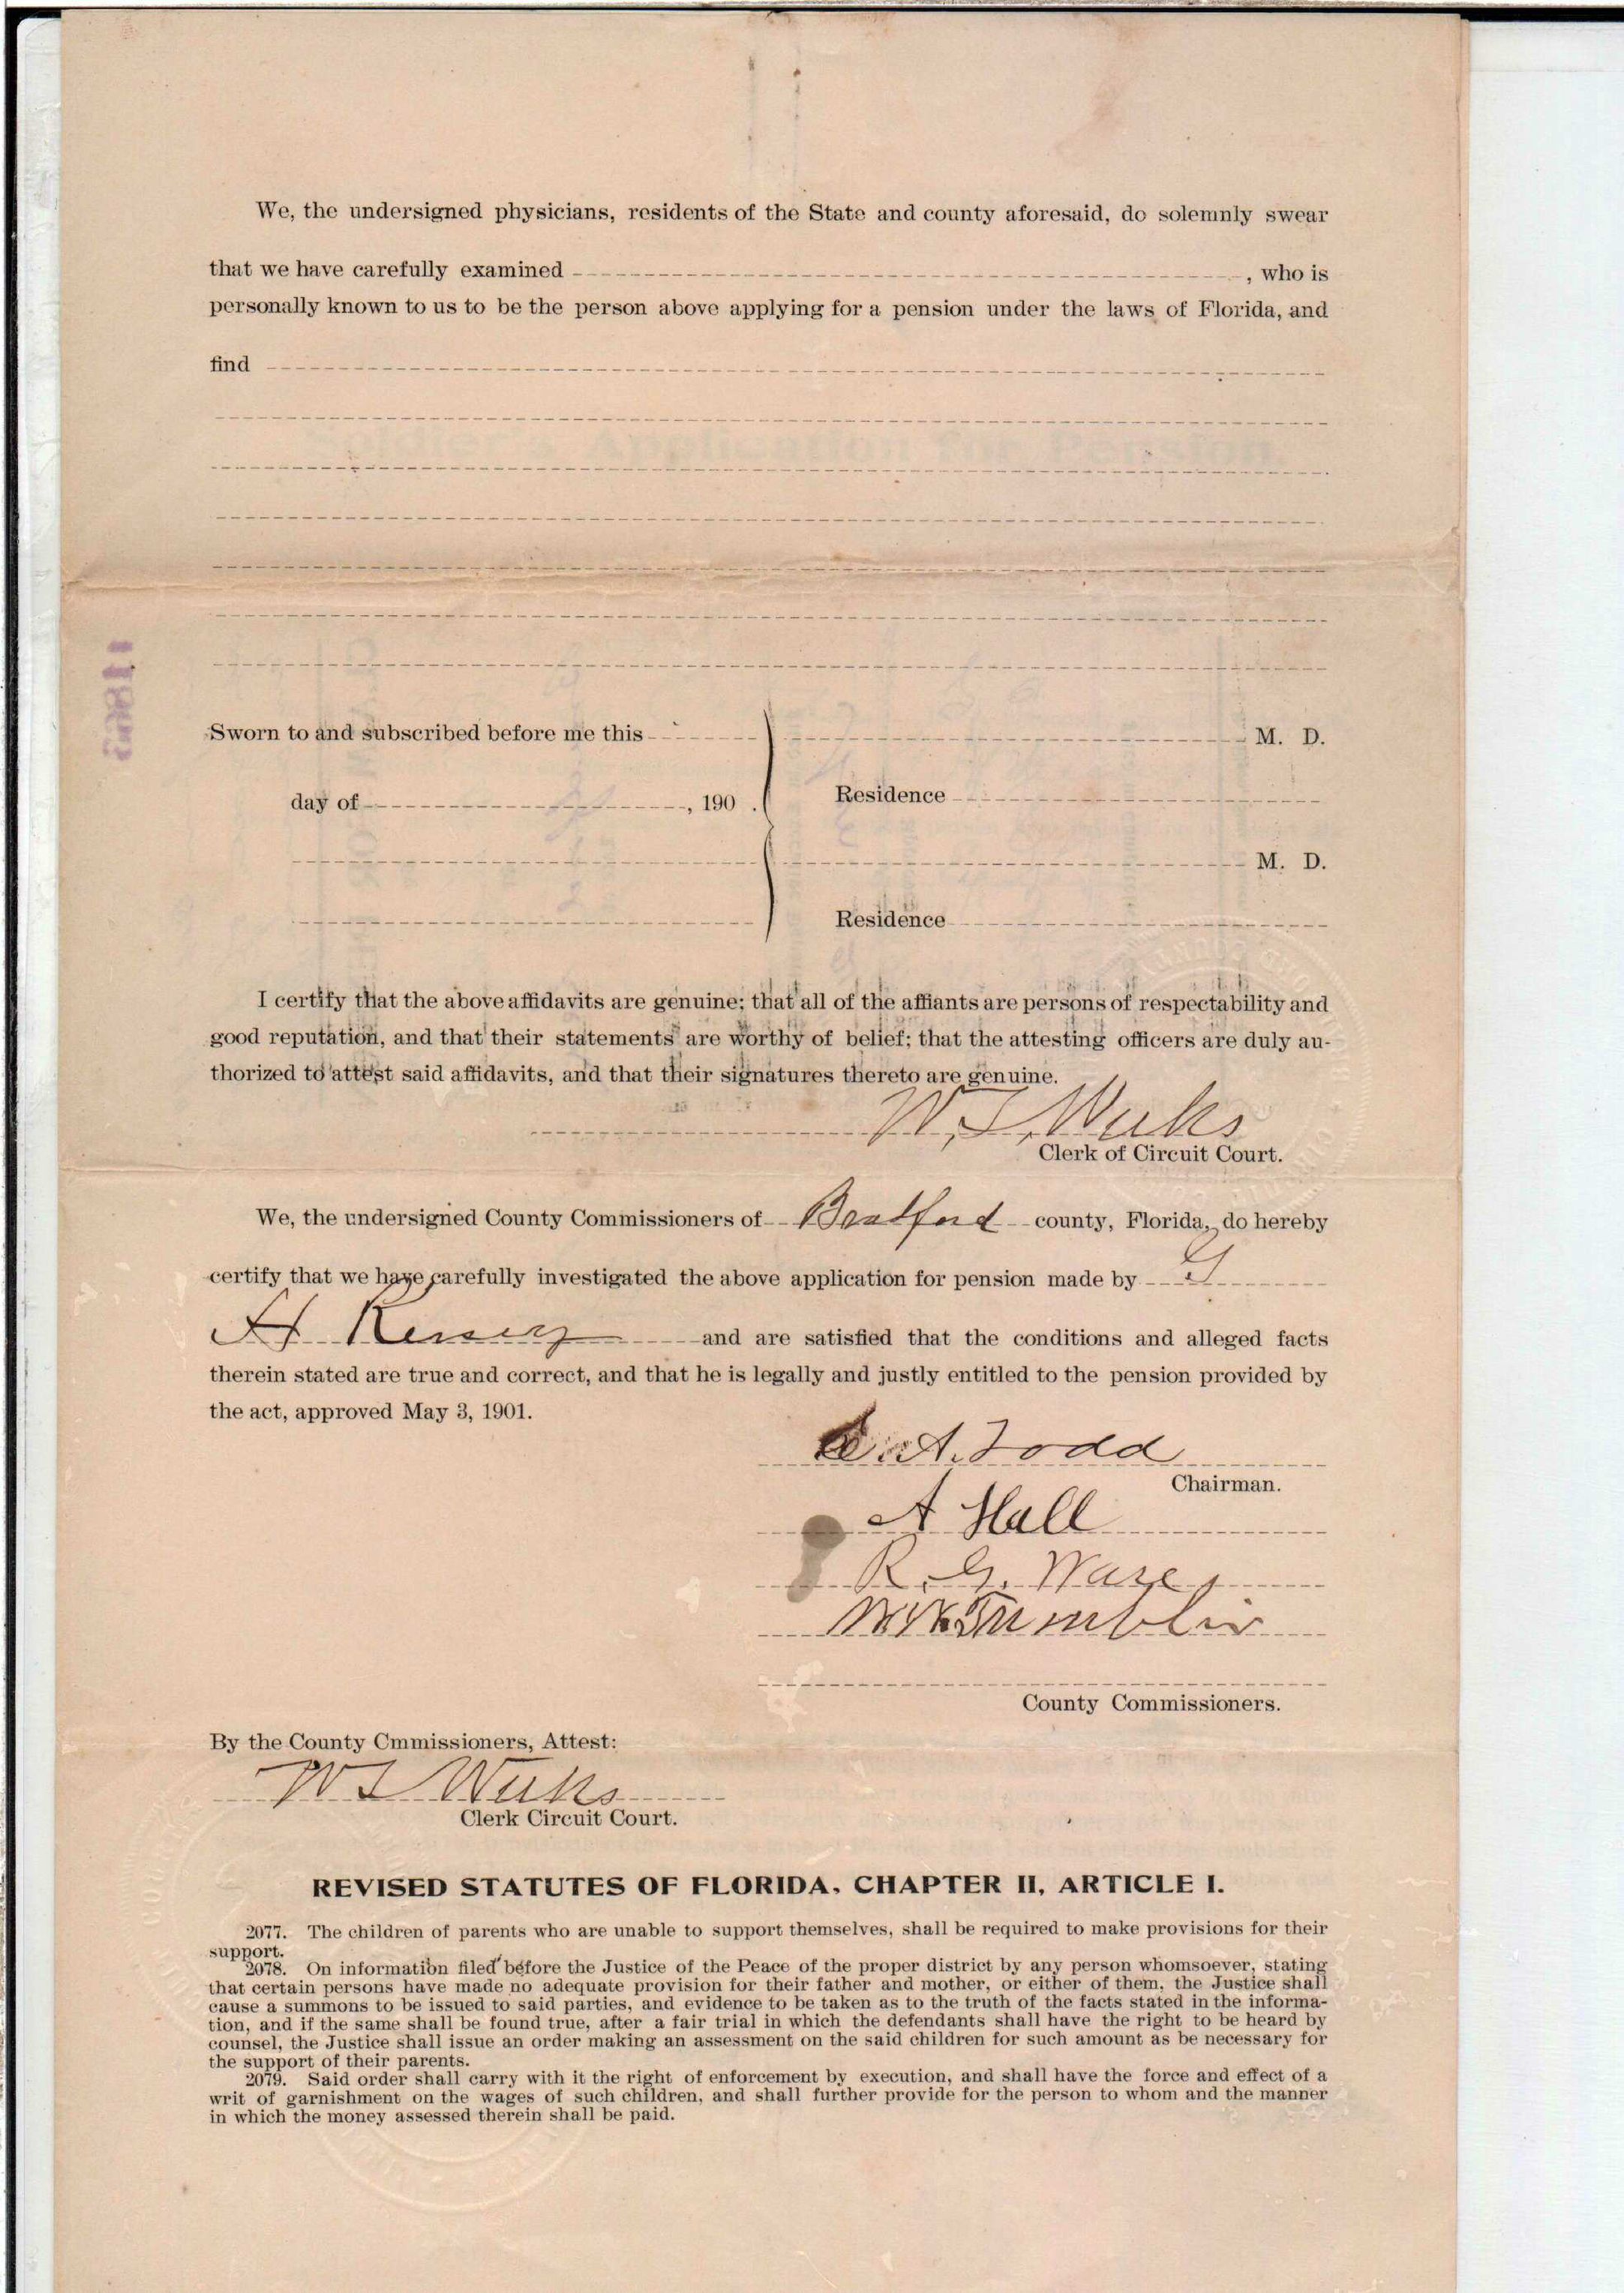 We, the undersigned physicians, residents of the State and county aforesaid, do solemnly swear
that we have carefully examined , who is
personally known to us to be the person above applying for a pension under the laws of Florida, and
find
Sworn to and subscribed before me this M. D.
day of , 190 . Residence
M. D.
Residence
I certify that the above affidavits are genuine; that all of the affiants are persons of respectability and
good reputation, and that their statements are worthy of belief; that the attesting officers are duly au-
thorized to attest said affidavits, and that their signatures thereto are genuine.
W. S. Weeks
Clerk of Circuit Court.
We, the undersigned County Commissioners of Bradford county, Florida, do hereby
certify that we have carefully investigated the above application for pension made by G
H Kersey and are satisfied that the conditions and alleged facts
therein stated are true and correct, and that he is legally and justly entitled to the pension provided by
the act, approved May 3, 1901.
A. Todd
Chairman.
A Hall
R. G. Ware
County Commissioners.
By the County Cmmissioners, Attest:
W S Weeks
Clerk Circuit Court.
REVISED STATUTES OF FLORIDA, CHAPTER II, ARTICLE I.
2077. The children of parents who are unable to support themselves, shall be required to make provisions for their
support.
2078. On information filed before the Justice of the Peace of the proper district by any person whomsoever, stating
that certain persons have made no adequate provision for their father and mother, or either of them, the Justice shall
cause a summons to be issued to said parties, and evidence to be taken as to the truth of the facts stated in the informa-
tion, and if the same shall be found true, after a fair trial in which the defendants shall have the right to be heard by
counsel, the Justice shall issue an order making an assessment on the said children for such amount as be necessary for
the support of their parents.
2079. Said order shall carry with it the right of enforcement by execution, and shall have the force and effect of a
writ of garnishment on the wages of such children, and shall further provide for the person to whom and the manner
in which the money assessed therein shall be paid.